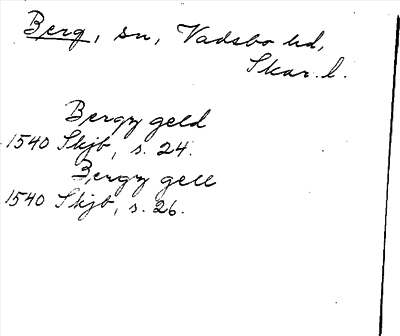 Berg, sn, Vadsbo hd,
Skar. l.
Bergz geld
1540 Skjb, s. 24.
Bergz gell
1540 Skjb, s. 26.